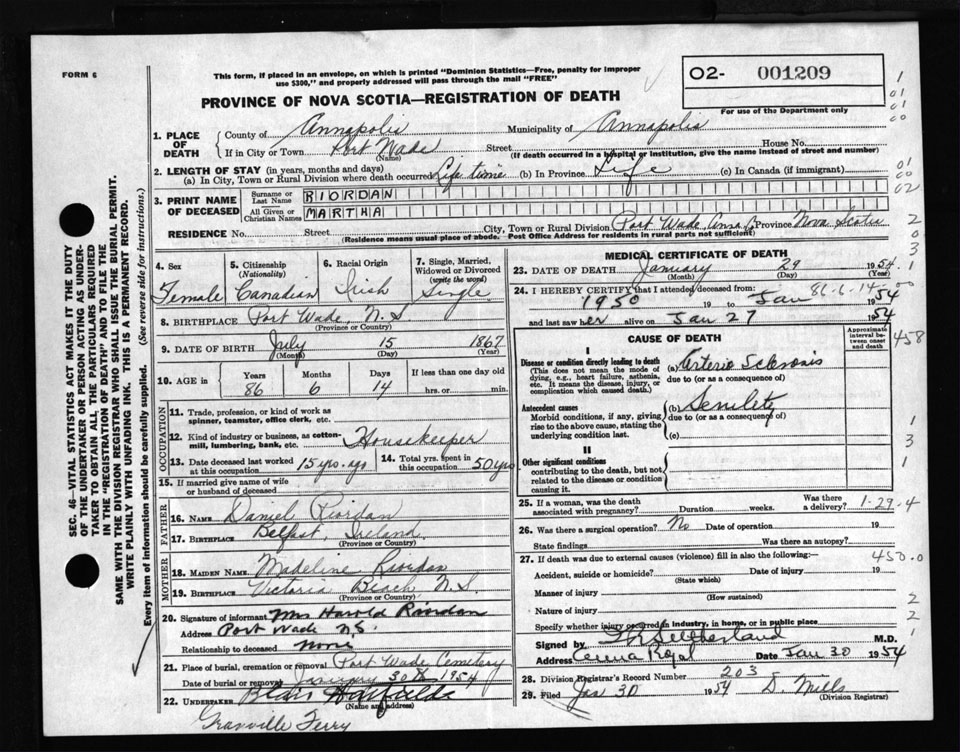 FORM 6
This form, if placed in an envelope, on which is printed "Dominion Statistics—Free, penalty for improper
use $300," and properly addressed will pass through the mail "FREE"
02- 001209
For use of the Department only
PROVINCE OF NOVA SCOTIA—REGISTRATION OF DEATH
1. PLACE OF DEATH
County of Annapolis Municipality of Annapolis
If in City or Town Port Wade Street House No.
(Name) (If death occurred in a hospital or institution, give the name instead of street and number)
2. LENGTH OF STAY (in years, months and days)
(a) In City, Town or Rural Division where death occurred Life time (b) In Province Life (c) In Canada (if immigrant)
3. PRINT NAME OF DECEASED
Surname or Last Name RIORDAN
All Given or Christian Names MARTHA
RESIDENCE No. Street City, Town or Rural Division Port Wade Anna Co Province Nova Scotia
(Residence means usual place of abode. Post Office Address for residents in rural parts not sufficient)
SEC. 46—VITAL STATISTICS ACT MAKES IT THE DUTY
OF THE UNDERTAKER OR PERSON ACTING AS UNDER-
TAKER TO OBTAIN ALL THE PARTICULARS REQUIRED
IN THE "REGISTRATION OF DEATH" AND TO FILE THE
SAME WITH THE DIVISION REGISTRAR WHO SHALL ISSUE THE BURIAL PERMIT.
WRITE PLAINLY WITH UNFADING INK. THIS IS A PERMANENT RECORD.
Every item of information should be carefully supplied. (See reverse side for instructions.)
4. Sex Female
5. Citizenship (Nationality) Canadian
6. Racial Origin Irish
7. Single, Married, Widowed or Divorced (write the word) Single
8. BIRTHPLACE Port Wade, N.S
(Province or Country)
9. DATE OF BIRTH July 15 1867
(Month) (Day) (Year)
10. AGE in Years Months Days If less than one day old
86 6 14 hrs. or min.
OCCUPATION
11. Trade, profession, or kind of work as
spinner, teamster, office clerk, etc.
12. Kind of industry or business, as cotton-
mill, lumbering, bank, etc. Housekeeper
13. Date deceased last worked at this occupation 15 yrs. ago
14. Total yrs. spent in this occupation 50 yrs
15. If married give name of wife
or husband of deceased
FATHER
16. NAME Daniel Riordan
17. BIRTHPLACE Belfast, Ireland
(Province or Country)
MOTHER
18. MAIDEN NAME Madeline Riordan
19. BIRTHPLACE Victoria Beach N.S
(Province or Country)
20. Signature of informant Mrs Harold Riordan
Address Port Wade N.S.
Relationship to deceased none
21. Place of burial, cremation or removal Port Wade Cemetery
Date of burial or removal January 30th 1954
22. UNDERTAKER Blair
(Name and address)
Granville Ferry
MEDICAL CERTIFICATE OF DEATH
23. DATE OF DEATH January 29 1954
(Month) (Day) (Year)
86-6-14
24. I HEREBY CERTIFY that I attended deceased from:
1950 19 to Jan 1954
and last saw her alive on Jan 27 1954
CAUSE OF DEATH
Approximate interval between onset and death
I
Disease or condition directly leading to death
(This does not mean the mode of
dying, e.g., heart failure, asthenia,
etc. It means the disease, injury, or
complication which caused death.)
(a) Arterio Sclerosis
due to (or as a consequence of)
Antecedent causes
Morbid conditions, if any, giving
rise to the above cause, stating the
underlying condition last.
(b) Senility
due to (or as a consequence of)
(c)
II
Other significant conditions
contributing to the death, but not
related to the disease or condition
causing it.
25. If a woman, was the death
associated with pregnancy? Duration weeks. Was there a delivery? 1-29-4
26. Was there a surgical operation? No Date of operation 19
State findings Was there an autopsy?
27. If death was due to external causes (violence) fill in also the following: 450.0
Accident, suicide or homicide? Date of injury 19
(State which)
Manner of injury
(How sustained)
Nature of injury
Specify whether injury occurred in industry, in home, or in public place
Signed by Sutherland M.D.
Address Royal Date Jan 30 1954
28. Division Registrar's Record Number 203
29. Filed Jan 30 1954 D. Mills
(Division Registrar)
1
01
01
00
01
00
02
2
0
3
1
00
458
1
3
1
2
2
1